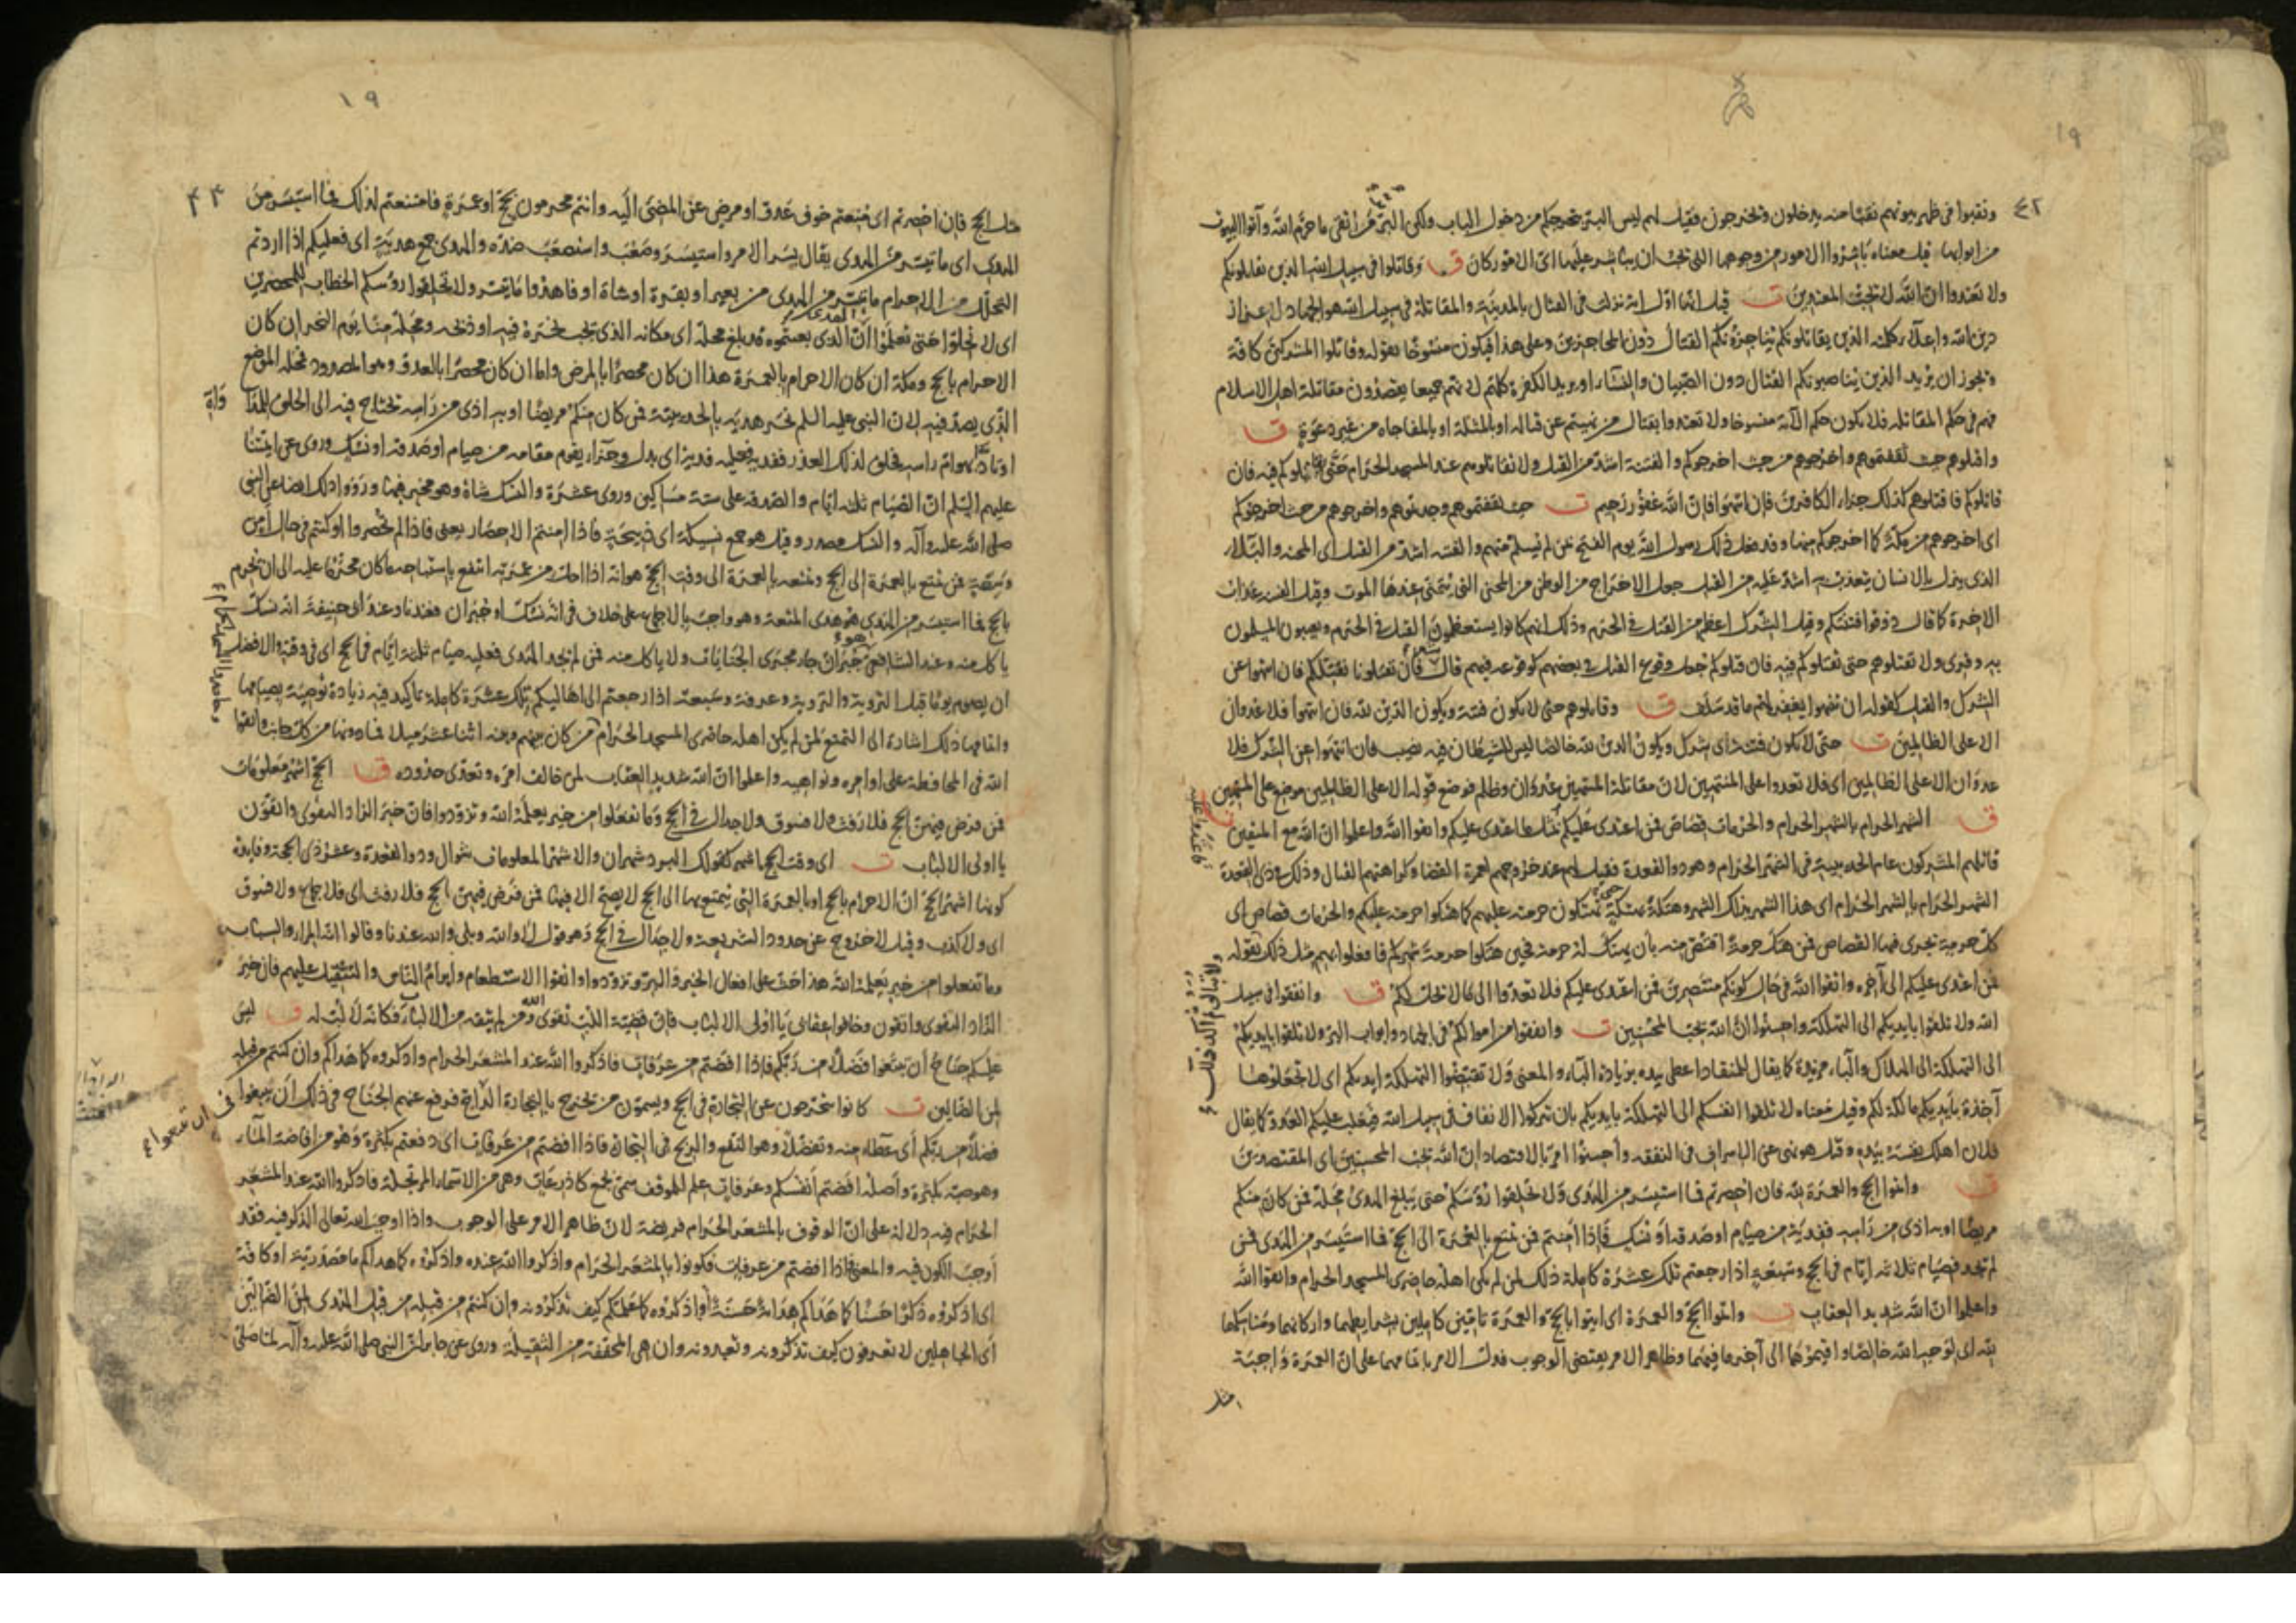 ١٩
٤٢
ونقبوا فى ظهر بيوتهم نقبا منه يدخلون ويخرجون فقيل لهم ليس البر بتحرجكم من دخول الباب ولكن البر من اتقى ما حرم الله وأتوا البيوت
من ابوابها قيل معناه باشروا الامور من وجوهها التى يجب ان يباشر عليها اى الامور كان ق وقاتلوا فى سبيل الله الذين يقاتلونكم
ولا تعتدوا ان الله لا يحب المعتدين ت قيل انها اول اية نزلت فى القتال بالمدينة والمقاتلة فى سبيل الله هو الجهاد لاعزاز
دين الله واعلاء كلمته الذين يقاتلونكم يناجزونكم القتال دون المحاجزين وعلى هذا فيكون منسوخا بقوله وقاتلوا المشركين كافة
ويجوز ان يريد الذين يناصبونكم القتال دون الصبيان والنساء او يريد الكفرة كلهم لانهم جميعا يقصدون مقاتلة اهل الاسلام
فهم فى حكم المقاتلة فلا يكون حكم الآية منسوخا ولا تعتدوا بقتال من نهيتم عن قتاله او بالمثلة او بالمفاجاه من غير دعوة ق
واقتلوهم حيث ثقفتموهم واخرجوهم من حيث اخرجوكم والفتنة اشد من القتل ولا تقاتلوهم عند المسجد الحرام حتى يقاتلوكم فيه فان
قاتلوكم فاقتلوهم كذلك جزاء الكافرين فان انتهوا فان الله غفور رحيم ت حيث ثقفتموهم وجدتموهم واخرجوهم من حيث اخرجوكم
اى اخرجوهم من مكة كما اخرجوكم منها وقد فعل ذلك رسول الله يوم الفتح بمن لم يسلم منهم والفتنة اشد من القتل اى المحنة والبلاء
الذى ينزل بالانسان يتعذب به اشد عليه من القتل جعل الاخراج من الوطن من المحن التى يتمنى عندها الموت وقيل الفتنة عذاب
الاخرة كما قال ذوقوا فتنتكم وقيل الشرك اعظم من القتل فى الحرم وذلك انهم كانوا يستعظمون القتل فى الحرم ويعيبون المسلمون
به وقرى ولا تقتلوهم حتى يقتلوكم فيه فان قتلوكم جعل وقوع القتل فى بعضهم كوقوعه فيهم قال فان تقتلونا نقتلكم فان انتهوا عن
الشرك والقتل كقوله ان ينتهوا يغفر لهم ما قد سلف ق وقاتلوهم حتى لا تكون فتنة ويكون الدين لله فان انتهوا فلا عدوان
الا على الظالمين ت حتى لا تكون فتنة اى شرك ويكون الدين لله خالصا ليس للشيطان فيه نصيب فان انتهوا عن الشرك فلا
عدوان الا على الظالمين اى فلا تعدوا على المنتهين لان مقاتلة المنتهين عدوان وظلم فوضع قوله الا على الظالمين موضع على المنتهين
ق الشهر الحرام بالشهر الحرام والحرمات قصاص فمن اعتدى عليكم بمثل ما اعتدى عليكم واتقوا الله واعلموا ان الله مع المتقين ت
فاعتدوا عليه
قاتلهم المشركون عام الحديبية فى الشهر الحرام وهو ذو القعدة فقيل لهم عند خروجهم لعمرة القضا وكراهتهم القتال وذلك فى ذى القعدة
الشهر الحرام بالشهر الحرام اى هذا الشهر بذلك الشهر وهتكه بهتكه تهتكون حرمته عليهم كما هتكوا حرمته عليكم والحرمات قصاص اى
كل حرمة يجرى فيها القصاص فمن هتك حرمة اقتص منه بان يهتك له حرمة فحين هتكوا حرمة شهركم فافعلوا بهم مثل ذلك بقوله
ولا تبالوا ثم اكد ذلك
فمن اعتدى عليكم الى آخره واتقوا الله فى حال كونكم منتصرين فمن اعتدى عليكم فلا تعتدوا الى ما لا يحل لكم ق وانفقوا فى سبيل
الله ولا تلقوا بايديكم الى التهلكة واحسنوا ان الله يحب المحسنين ت وانفقوا من اموالكم فى الجهاد وابواب البر ولا تلقوا بايديكم
الى التهلكة الى الهلاك والباء مزيدة كما يقال للمنقاد اعطى بيده بزيادة الباء والمعنى ولا تقبضوا التهلكة ايديكم اى لا تجعلوها
آخذة بايديكم مالكة لكم وقيل معناه لا تلقوا انفسكم الى التهلكة بايديكم بان تتركوا الانفاق فى سبيل الله فيغلب عليكم العدو كما يقال
فلان اهلك نفسه بيده وقيل هو نهى عن الاسراف فى النفقة واحسنوا امر بالاقتصاد ان الله يحب المحسنين اى المقتصدين
ق واتموا الحج والعمرة لله فان احصرتم فما استيسر من الهدى ولا تحلقوا رؤسكم حتى يبلغ الهدى محله فمن كان منكم
مريضا او به اذى من راسه ففدية من صيام او صدقة او نسك فاذا امنتم فمن تمتع بالعمرة الى الحج فما استيسر من الهدى فمن
لم يجد فصيام ثلاثة ايام فى الحج وسبعة اذا رجعتم تلك عشرة كاملة ذلك لمن لم يكن اهله حاضرى المسجد الحرام واتقوا الله
واعلموا ان الله شديد العقاب ت واتموا الحج والعمرة اى ايتوا بالحج والعمرة تامين كاملين بشرايطهما واركانهما ومناسكهما
لله اى لوجه الله خالصا واقيموهما الى آخر ما فيهما وظاهر الامر يقتضى الوجوب فدل الامر باتمامهما على ان العمرة واجبة
مثل
١٩
٤٣
مثل الحج فان احصرتم اى منعتم خوف عدو او مرض عن المضى اليه وانتم محرمون بحج او عمرة فامتنعتم لذلك فما استيسر من
الهدى اى ما تيسر من الهدى يقال يسر الامر واستيسر وصعب واستصعب ضده والهدى جمع هدية اى فعليكم اذا اردتم
التحلل من الاحرام ما تيسر من الهدى من بعير او بقرة او شاة او فاهدوا ما تيسر ولا تحلقوا رؤسكم الخطاب للمحصرين
اى لا تحلوا حتى تعلموا ان الهدى الذى بعثتموه قد بلغ محله اى مكانه الذى يجب نحره فيه او ذبحه ومحله منا يوم النحر ان كان
الاحرام بالحج ومكة ان كان الاحرام بالعمرة هذا ان كان محصرا بالمرض واما ان كان محصرا بالعدو وهو المصدود فمحله الموضع
الذى يصد فيه لان النبى عليه السلم نحر هديه بالحديبية فمن كان منكم مريضا او به اذى من راسه يحتاج فيه الى الحلق للمداواة
او تاذ بهوام راسه فحلق لذلك العذر ففدية فعليه فدية اى بدل وجزاء يقوم مقامه من صيام او صدقة او نسك وروى عن ائمتنا
عليهم السلم ان الصيام ثلثة ايام والصدقة على ستة مساكين وروى عشرة والنسك شاة وهو مخير فيها ورووا ذلك ايضا عن النبى
صلى الله عليه وآله والنسك مصدر وقيل هو جمع نسيكة اى ذبيحة فاذا امنتم الاحصار يعنى فاذا لم تحصروا او كنتم فى حال امن
وسعة فمن تمتع بالعمرة الى الحج وتمتعه بالعمرة الى وقت الحج هو انه اذا احل من عمرته انتفع باستباحة ما كان محرما عليه الى ان يحرم
بالحج فما استيسر من الهدى هو هدى المتعة وهو واجب بالاجماع على خلاف فى انه نسك او جبران فعندنا وعند ابى حنيفة انه نسك
ياكل منه وعند الشافعى هو جبران جار مجرى الجنايات ولا ياكل منه فمن لم يجد الهدى فعليه صيام ثلثة ايام فى الحج اى فى وقته والافضل
ان يصوم يوما قبل التروية والتروية وعرفة وسبعة اذا رجعتم الى اهاليكم تلك عشرة كاملة تاكيد فيه زيادة توصية بصيامها
واتمامها ذلك اشارة الى التمتع لمن لم يكن اهله حاضرى المسجد الحرام من كان بينهم وبينه اثنا عشر ميلا فما دونها من كل جانب واتقوا
الله فى المحافظة على اوامره ونواهيه واعلموا ان الله شديد العقاب لمن خالف امره وتعدى حدوده ق الحج اشهر معلومات
فمن فرض فيهن الحج فلا رفث ولا فسوق ولا جدال فى الحج وما تفعلوا من خير يعلمه الله وتزودوا فان خير الزاد التقوى واتقون
يا اولى الالباب ت اى وقت الحج اشهر كقولك البرد شهران والاشهر المعلومات شوال وذو القعدة وعشر ذى الحجة وفايدة
كونها اشهر الحج ان الاحرام بالحج او بالعمرة التى يتمتع بها الى الحج لا يصح الا فيها فمن فرض فيهن الحج فلا رفث اى فلا جماع ولا فسوق
اى ولا كذب وقيل لا خروج عن حدود الشريعة ولا جدال فى الحج وهو قول لا والله وبلى والله عندنا وقالوا انه المراء والسباب
وما تفعلوا من خير يعلمه الله هذا حث على افعال الخير والبر وتزودوا واتقوا الاستطعام وابرام الناس والتثقيل عليهم فان خير
الزاد التقوى واتقون وخافوا عقابى يا اولى الالباب فان قضية اللب تقوى الله ومن لم يتقه من الالباء فكانه لا لب له ق ليس
عليكم جناح ان تبتغوا فضلا من ربكم فاذا افضتم من عرفات فاذكروا الله عند المشعر الحرام واذكروه كما هداكم وان كنتم من قبله
لمن الضالين ت كانوا يتحرجون عن التجارة فى الحج ويسمون من يخرج بالتجارة الداج فرفع عنهم الجناح فى ذلك ان تبتغوا
فى ان تبتغوا
فضلا من ربكم اى عطاء منه وتفضلا وهو النفع والربح فى التجارة فاذا افضتم من عرفات اى دفعتم بكثرة وهو من افاضة الماء
وهو صبه بكثرة واصله افضتم انفسكم وعرفات علم للموقف سمى بجمع كاذرعات وهى من الاسماء المرتجلة فاذكروا الله عند المشعر
الحرام فيه دلالة على ان الوقوف بالمشعر الحرام فريضة لان ظاهر الامر على الوجوب واذا اوجب الله تعالى الذكر فيه فقد
اوجب الكون فيه والمعنى فاذا افضتم من عرفات فكونوا بالمشعر الحرام واذكروا الله عنده واذكروه كما هداكم ما مصدرية او كافة
اى اذكروه ذكرا حسنا كما هداكم هداية حسنة او اذكروه كما علمكم كيف تذكرونه وان كنتم من قبله من قبل الهدى لمن الضالين
اى الجاهلين لا تعرفون كيف تذكرونه وتعبدونه وان هى المخففة من الثقيلة وروى عن جابر ان النبى صلى الله عليه وآله لما صلى